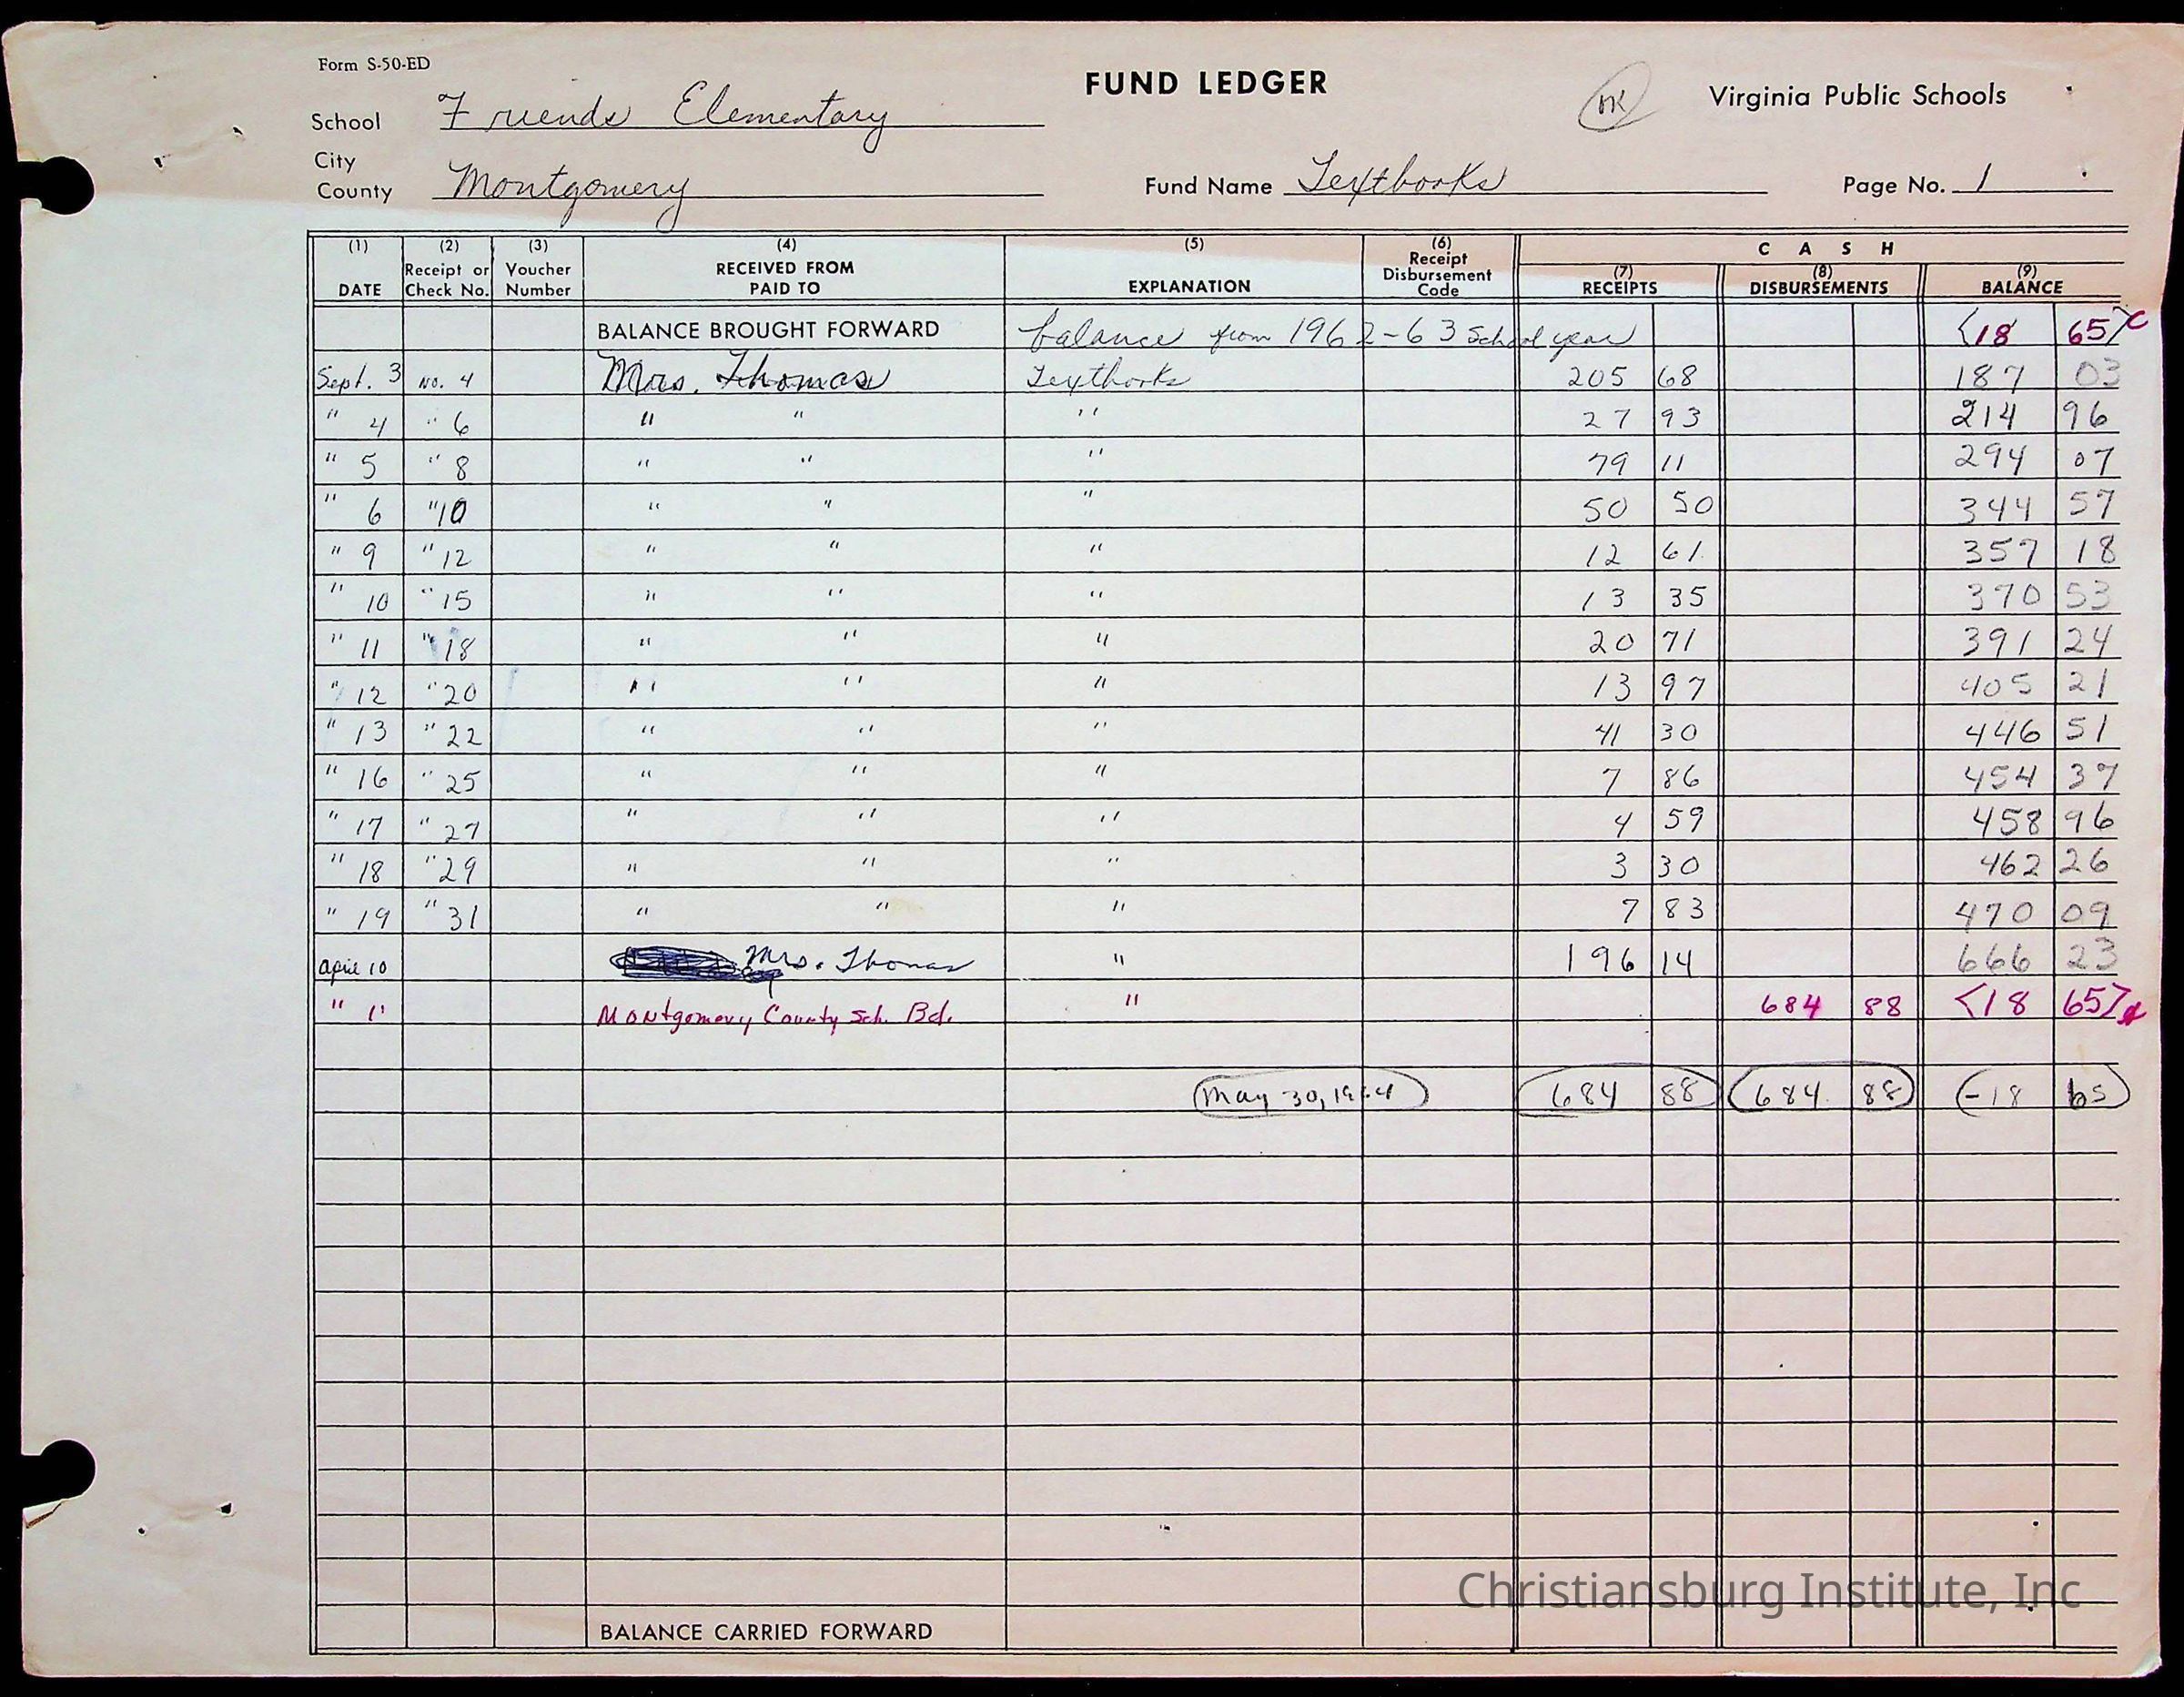 Form S-50-ED
FUND LEDGER
OK
Virginia Public Schools
School Friends Elementary
City
County Montgomery
Fund Name Textbooks
Page No. 1
(1) (2) (3) (4) (5) (6) C A S H
DATE Receipt or Check No. Voucher Number RECEIVED FROM PAID TO EXPLANATION Receipt Disbursement Code (7) RECEIPTS (8) DISBURSEMENTS (9) BALANCE
BALANCE BROUGHT FORWARD balance from 1962-63 School year <18 65>
Sept. 3 No. 4 Mrs. Thomas Textbooks 205 68 187 03
" 4 " 6 " " " 27 93 214 96
" 5 " 8 " " " 79 11 294 07
" 6 " 10 " " " 50 50 344 57
" 9 " 12 " " " 12 61 357 18
" 10 " 15 " " " 13 35 370 53
" 11 " 18 " " " 20 71 391 24
" 12 " 20 " " " 13 97 405 21
" 13 " 22 " " " 41 30 446 51
" 16 " 25 " " " 7 86 454 37
" 17 " 27 " " " 4 59 458 96
" 18 " 29 " " " 3 30 462 26
" 19 " 31 " " " 7 83 470 09
April 10 Mrs. Thomas " 196 14 666 23
" " Montgomery County Sch. Bd. " 684 88 <18 65>
May 30, 1964 684 88 684 88 -18 65
BALANCE CARRIED FORWARD
Christiansburg Institute, Inc